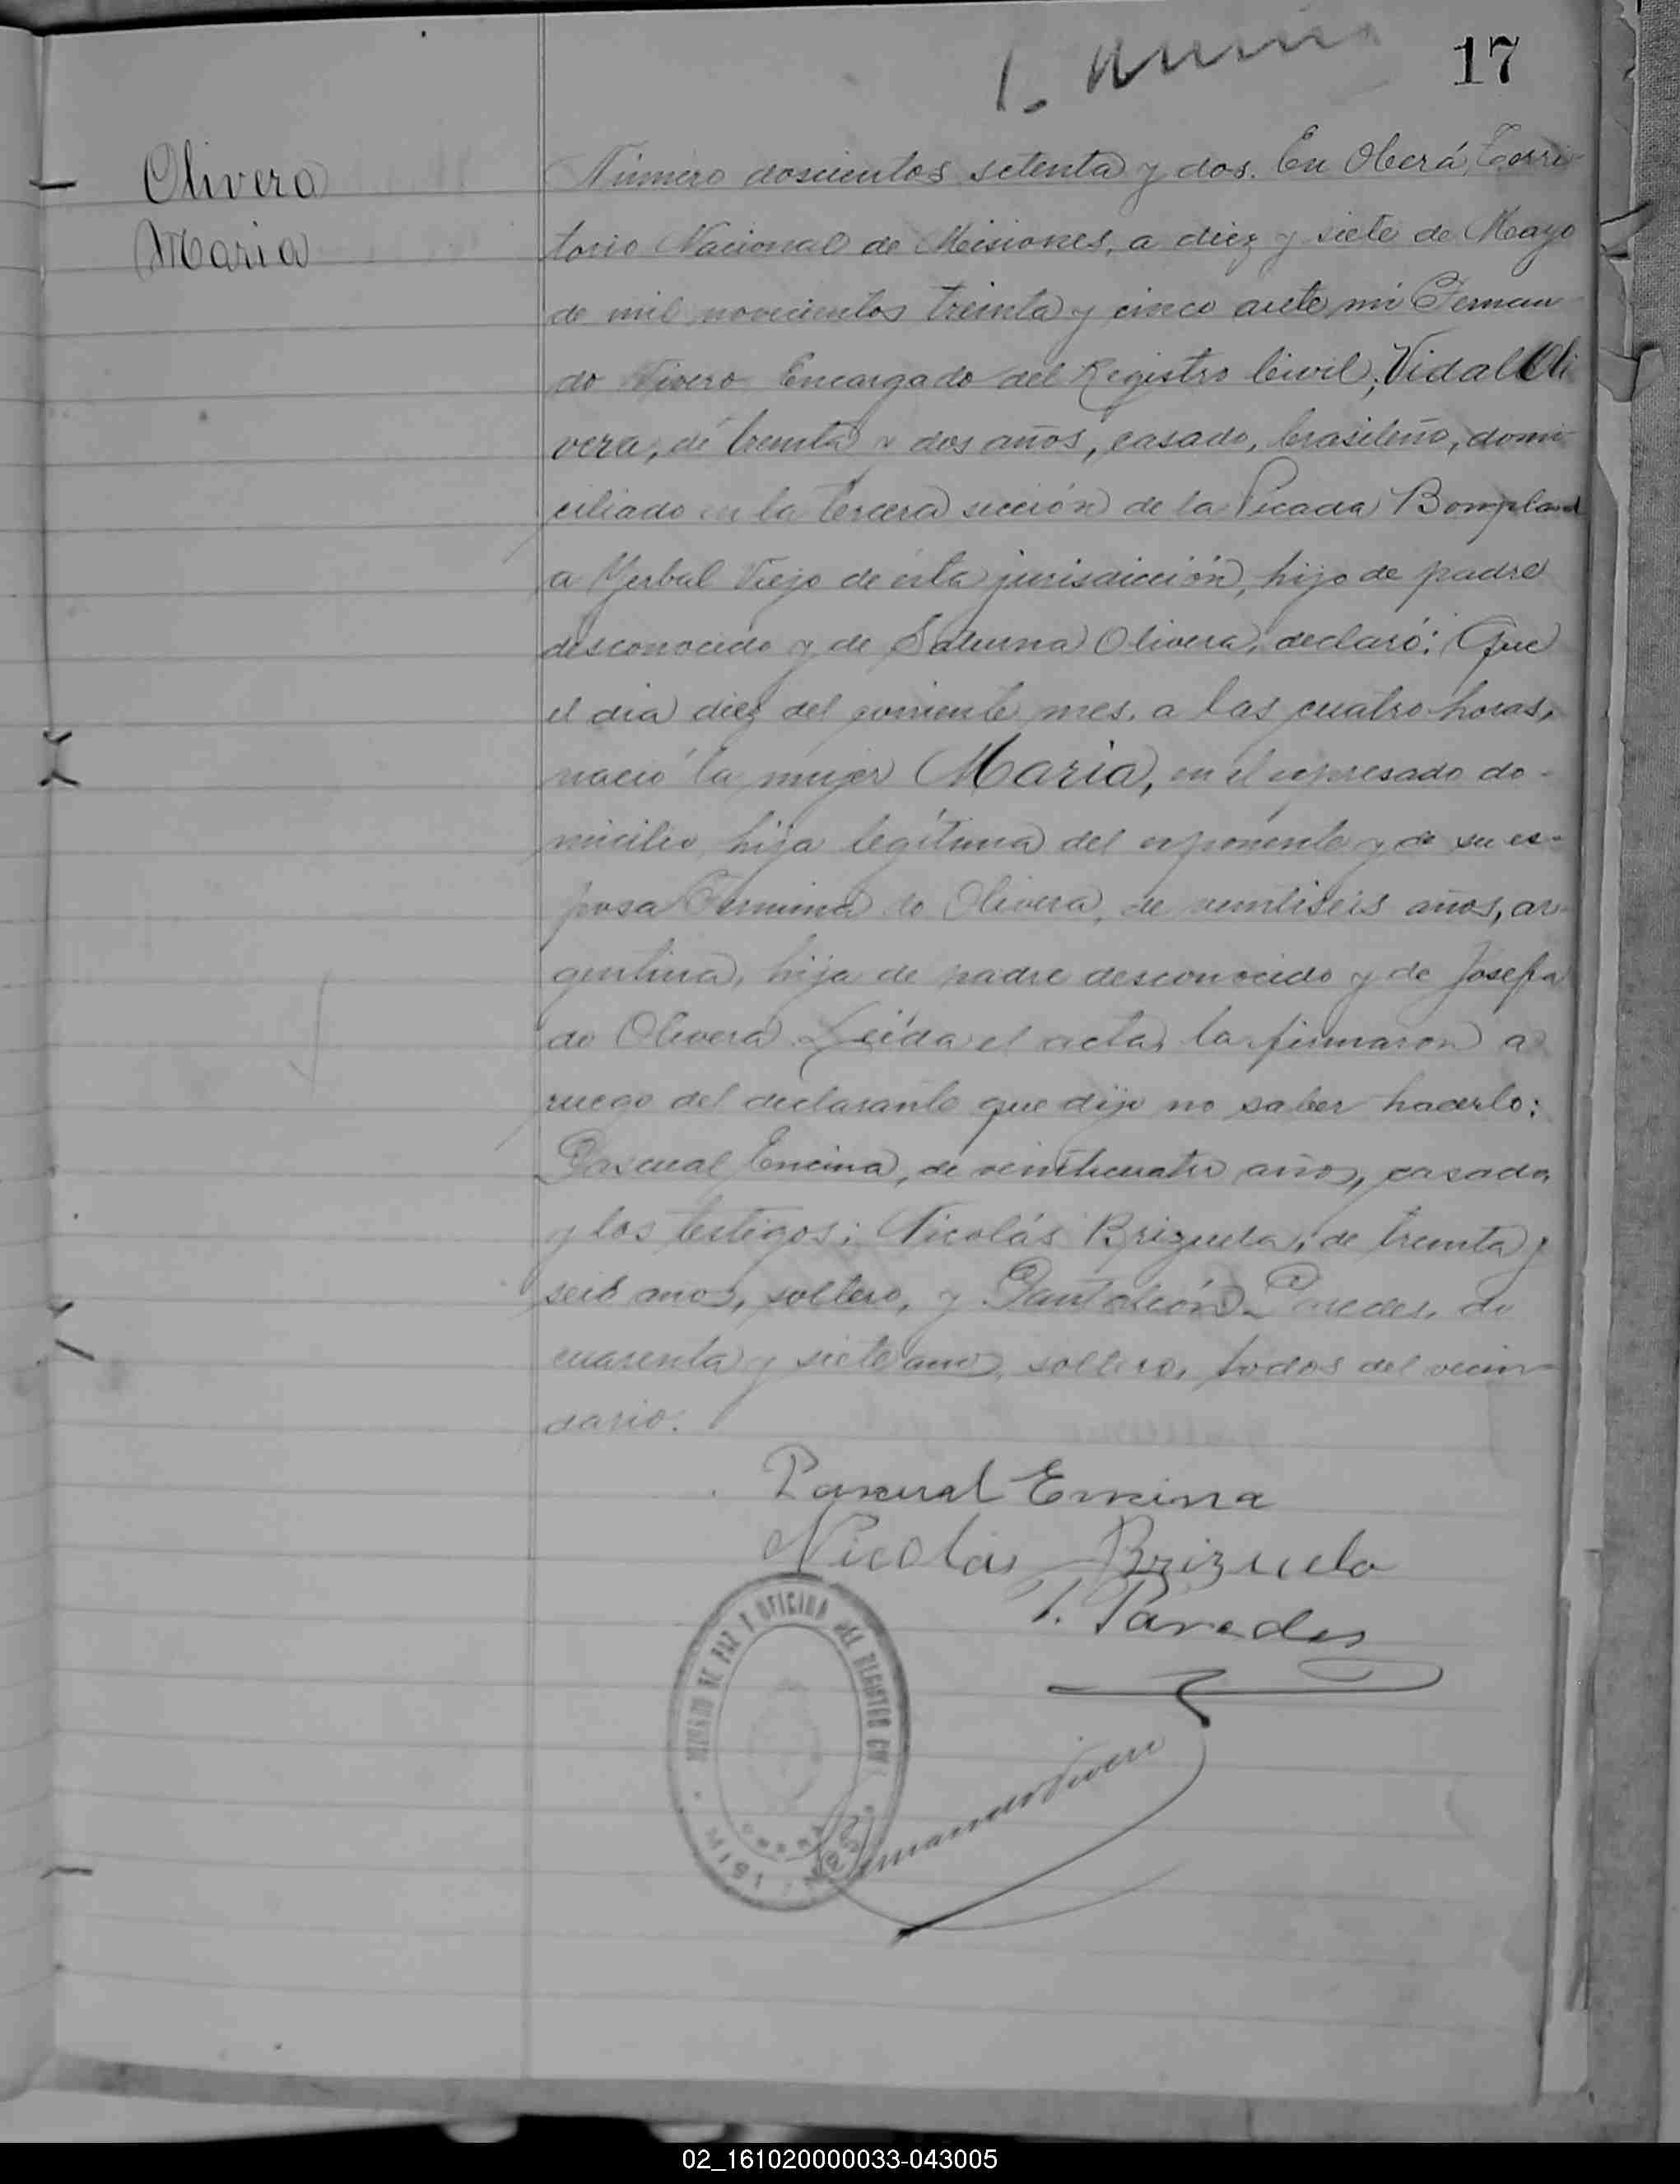 17
Olivera
Maria
Número doscientos setenta y dos. En Oberá, Terri-
torio Nacional de Misiones, a diez y siete de Mayo
de mil novecientos treinta y cinco ante mi Fernan-
do Vivero Encargado del Registro Civil; Vidal Oli
vera, de treinta y dos años, casado, brasileño, domi-
ciliado en la tercera sección de la Picada Bompland
a Yerbal Viejo de ésta jurisdicción, hijo de padre
desconocido y de Saturna Olivera, declaró: Que
el dia diez del corriente mes, a las cuatro horas,
nació la mujer Maria, en el expresado do-
micilio, hija legítima del exponente y de su es-
posa Fermina de Olivera, de veintiseis años, ar-
gentina, hija de padre desconocido y de Josefa
de Olivera. Leída el acta, la firmaron a
ruego del declarante que dijo no saber hacerlo:
Pascual Encina, de veinticuatro años, casado,
y los testigos: Nicolás Brizuela, de treinta y
seis años, soltero, y Pantaleón Paredes, de
cuarenta y siete años, soltero, todos del vecin-
dario.
Pascual Encina
Nicolas Brizuela
P. Paredes
JUZGADO DE PAZ Y OFICINA DEL REGISTRO CIVIL
OBERA
Fernando Vivero
02_161020000033-043005